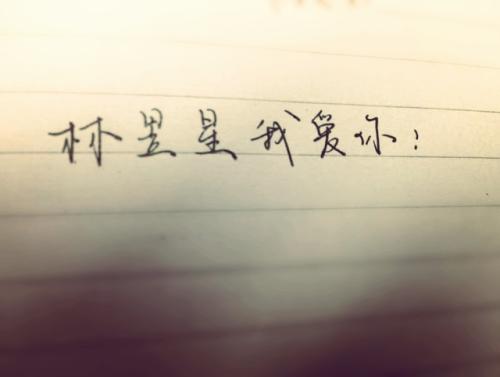 林昱星我爱你！